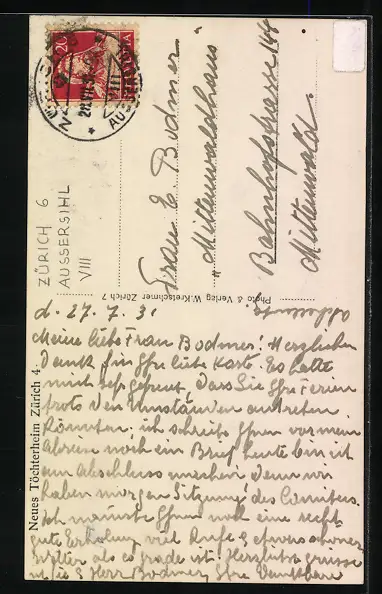 20
HELVETIA
ZÜRICH 6
AUSSERSIHL
VIII
Frau E. Bodmer
"Mittenwaldhaus"
Bahnhofstrasse 144
Mittenwald.
Photo & Verlag W. Kretschmer Zürich 7
Neues Töchterheim Zürich 4.
d. 27. 7. 31
Meine liebe Frau Bodmer! Herzlichen
Dank für Ihre liebe Karte. Es hatte
mich sehr gefreut, dass Sie Ihre Ferien
trotz den Umständen antreten
könnten. ich schreib Ihnen vor mein
Abreise noch ein Brief, heute bin ich
am Abschluss machen, denn wir
haben morgen Sitzung des Comitees.
Ich wünsche Ihnen noch eine recht
gute Erholung viel Ruhe & etwas schöner
Wetter als es grade ist. Herzliche Grüsse
& Herr Bodmer, Ihre dankbare